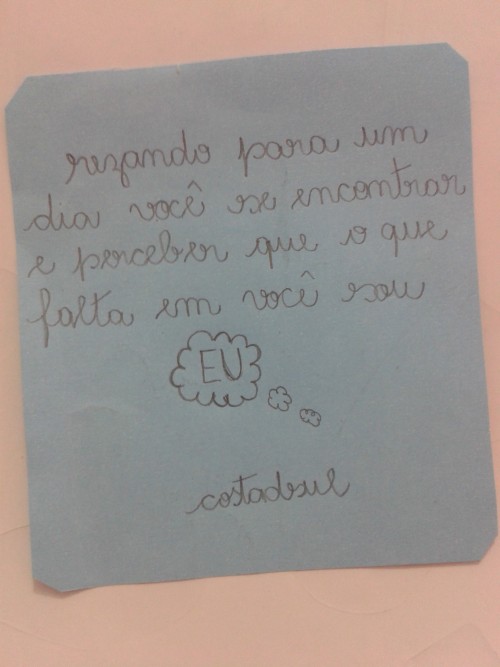 rezando para um
dia você se encontrar
e perceber que o que
falta em você sou
EU
costadsul